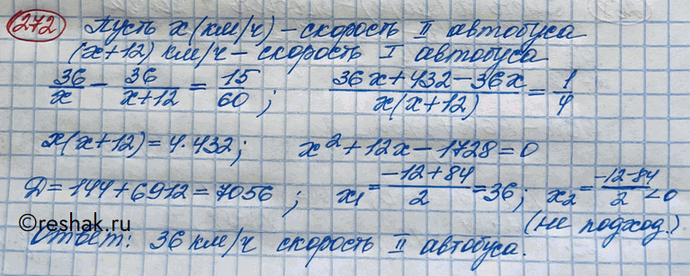 272 Пусть x (км/ч) – скорость II автобуса
(x+12) км/ч – скорость I автобуса
36/x − 36/(x+12) = 15/60; (36x+432−36x)/(x(x+12)) = 1/4
x(x+12)=4·432; x²+12x−1728=0
D=144+6912=7056; x₁=(−12+84)/2=36; x₂=(−12−84)/2<0
(не подход.)
Ответ: 36 км/ч скорость II автобуса.
©reshak.ru